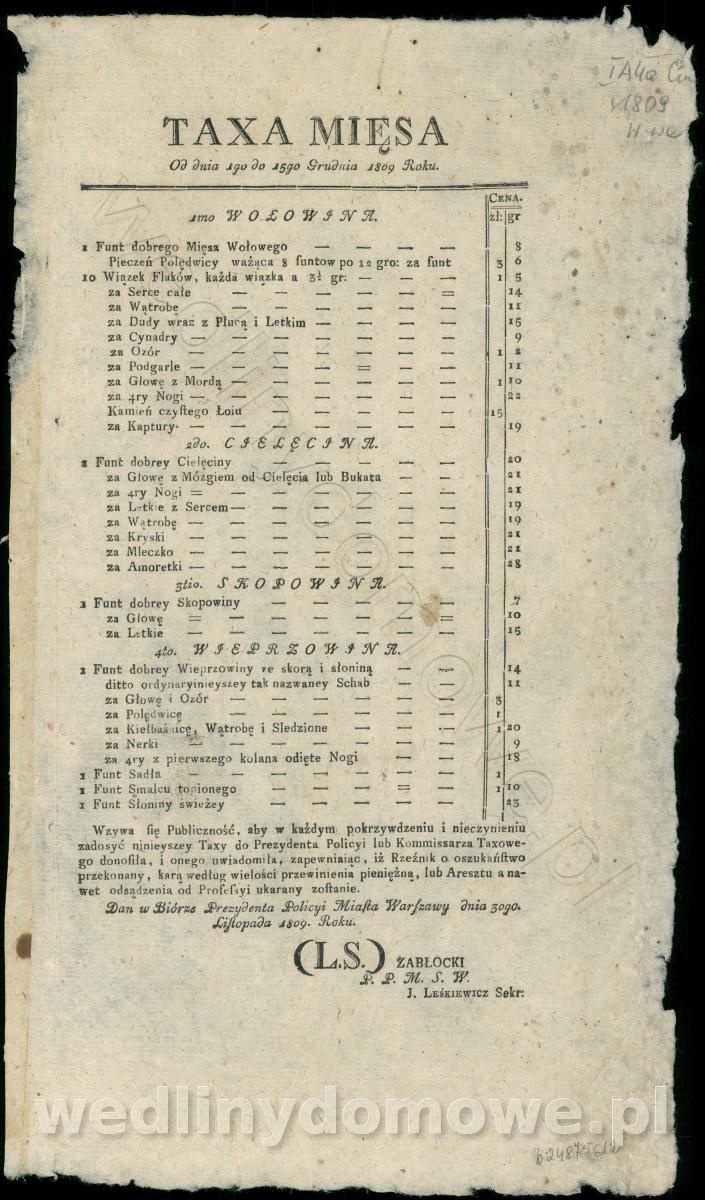 IA4a
1809
W-wa
TAXA MIĘSA
Od dnia 1go do 15go Grudnia 1809 Roku.
CENA.
1mo WOŁOWINA. zł: gr
1 Funt dobrego Mięsa Wołowego — — — — 8
Pieczeń Polędwicy ważąca 8 funtow po 12 gro: za funt 3 6
10 Wiązek Flaków, każda wiązka a 3½ gr: — — — 1 5
za Serce całe — — — — — — = 14
za Wątrobę — — — — — — — 11
za Dudy wraz z Płucą i Letkim — — — — 15
za Cynadry — — — — — — — 9
za Ozór — — — — — — — 1 2
za Podgarle — — — — = — — 11
za Głowę z Mordą — — — — — — 1 10
za 4ry Nogi — — — — — — — 22
Kamień czyſtego Łoiu — — — — — 15
za Kaptury — — — — — — — 19
2do. CIELĘCINA.
1 Funt dobrey Cielęciny — — — — — 20
za Głowę z Mózgiem od Cielęcia lub Bukata — — 21
za 4ry Nogi = — — — — — — 21
za Letkie z Sercem — — — — — — 19
za Wątrobę — — — — — — — 19
za Kryski — — — — — — — 21
za Mleczko — — — — — — — 21
za Amoretki — — — — — — — 28
3tio. SKOPOWINA.
1 Funt dobrey Skopowiny — — — — — 7
za Głowę = — — — — — = 10
za Letkie — — — — — — — 15
4to. WIEPRZOWINA.
1 Funt dobrey Wieprzowiny ze skorą i słoniną — — 14
ditto ordynaryinieyszey tak nazwaney Schab — — 11
za Głowę i Ozór — — — — — — 3
za Polędwicę — — — — — — 1
za Kiełbaśnicę, Wątrobę i Sledzione — — — 1 20
za Nerki — — — — — — — 9
za 4ry z pierwszego kolana odięte Nogi — — — 18
1 Funt Sadła — — — — — — — 1
1 Funt Smalcu topionego — — — = — 1 10
1 Funt Słoniny świeżey — — — — — 23
Wzywa ſię Publiczność, aby w każdym pokrzywdzeniu i nieczynieniu
zadosyć ninieyszey Taxy do Prezydenta Policyi lub Kommissarza Taxowe-
go donoſiła, i onego uwiadomiła, zapewniaiąc, iż Rzeźnik o oszukańſtwo
przekonany, karą według wielości przewinienia pieniężną, lub Aresztu a na-
wet odsądzenia od Profeſsyi ukarany zoſtanie.
Dan w Biórze Prezydenta Policyi Miaſta Warſzawy dnia 30go.
Liſtopada 1809. Roku.
(L.S.) ZABŁOCKI
P. P. M. S. W.
J. LEŚKIEWICZ Sekr:
wedlinydomowe.pl
wedlinydomowe.pl
b24875612